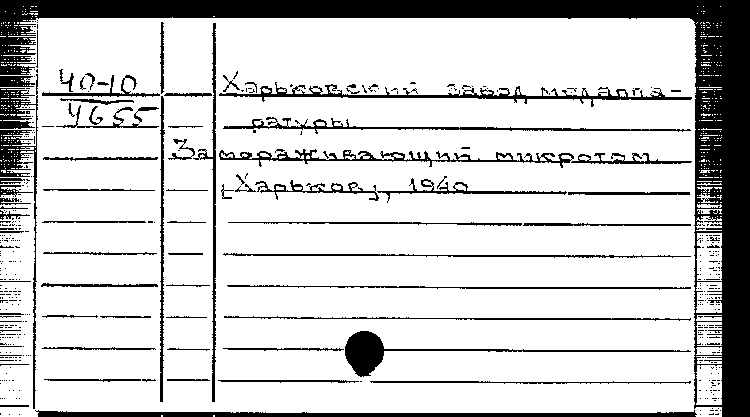 40-10
4655
Харьковский завод медаппа-
ратуры.
Замораживающий микротом.
[Харьков], 1940